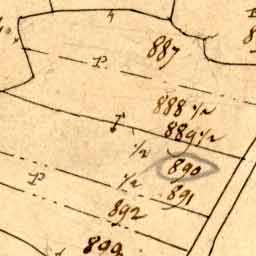 887
P.
888 1/2
889 1/2
1/2
890
1/2
891
P
892